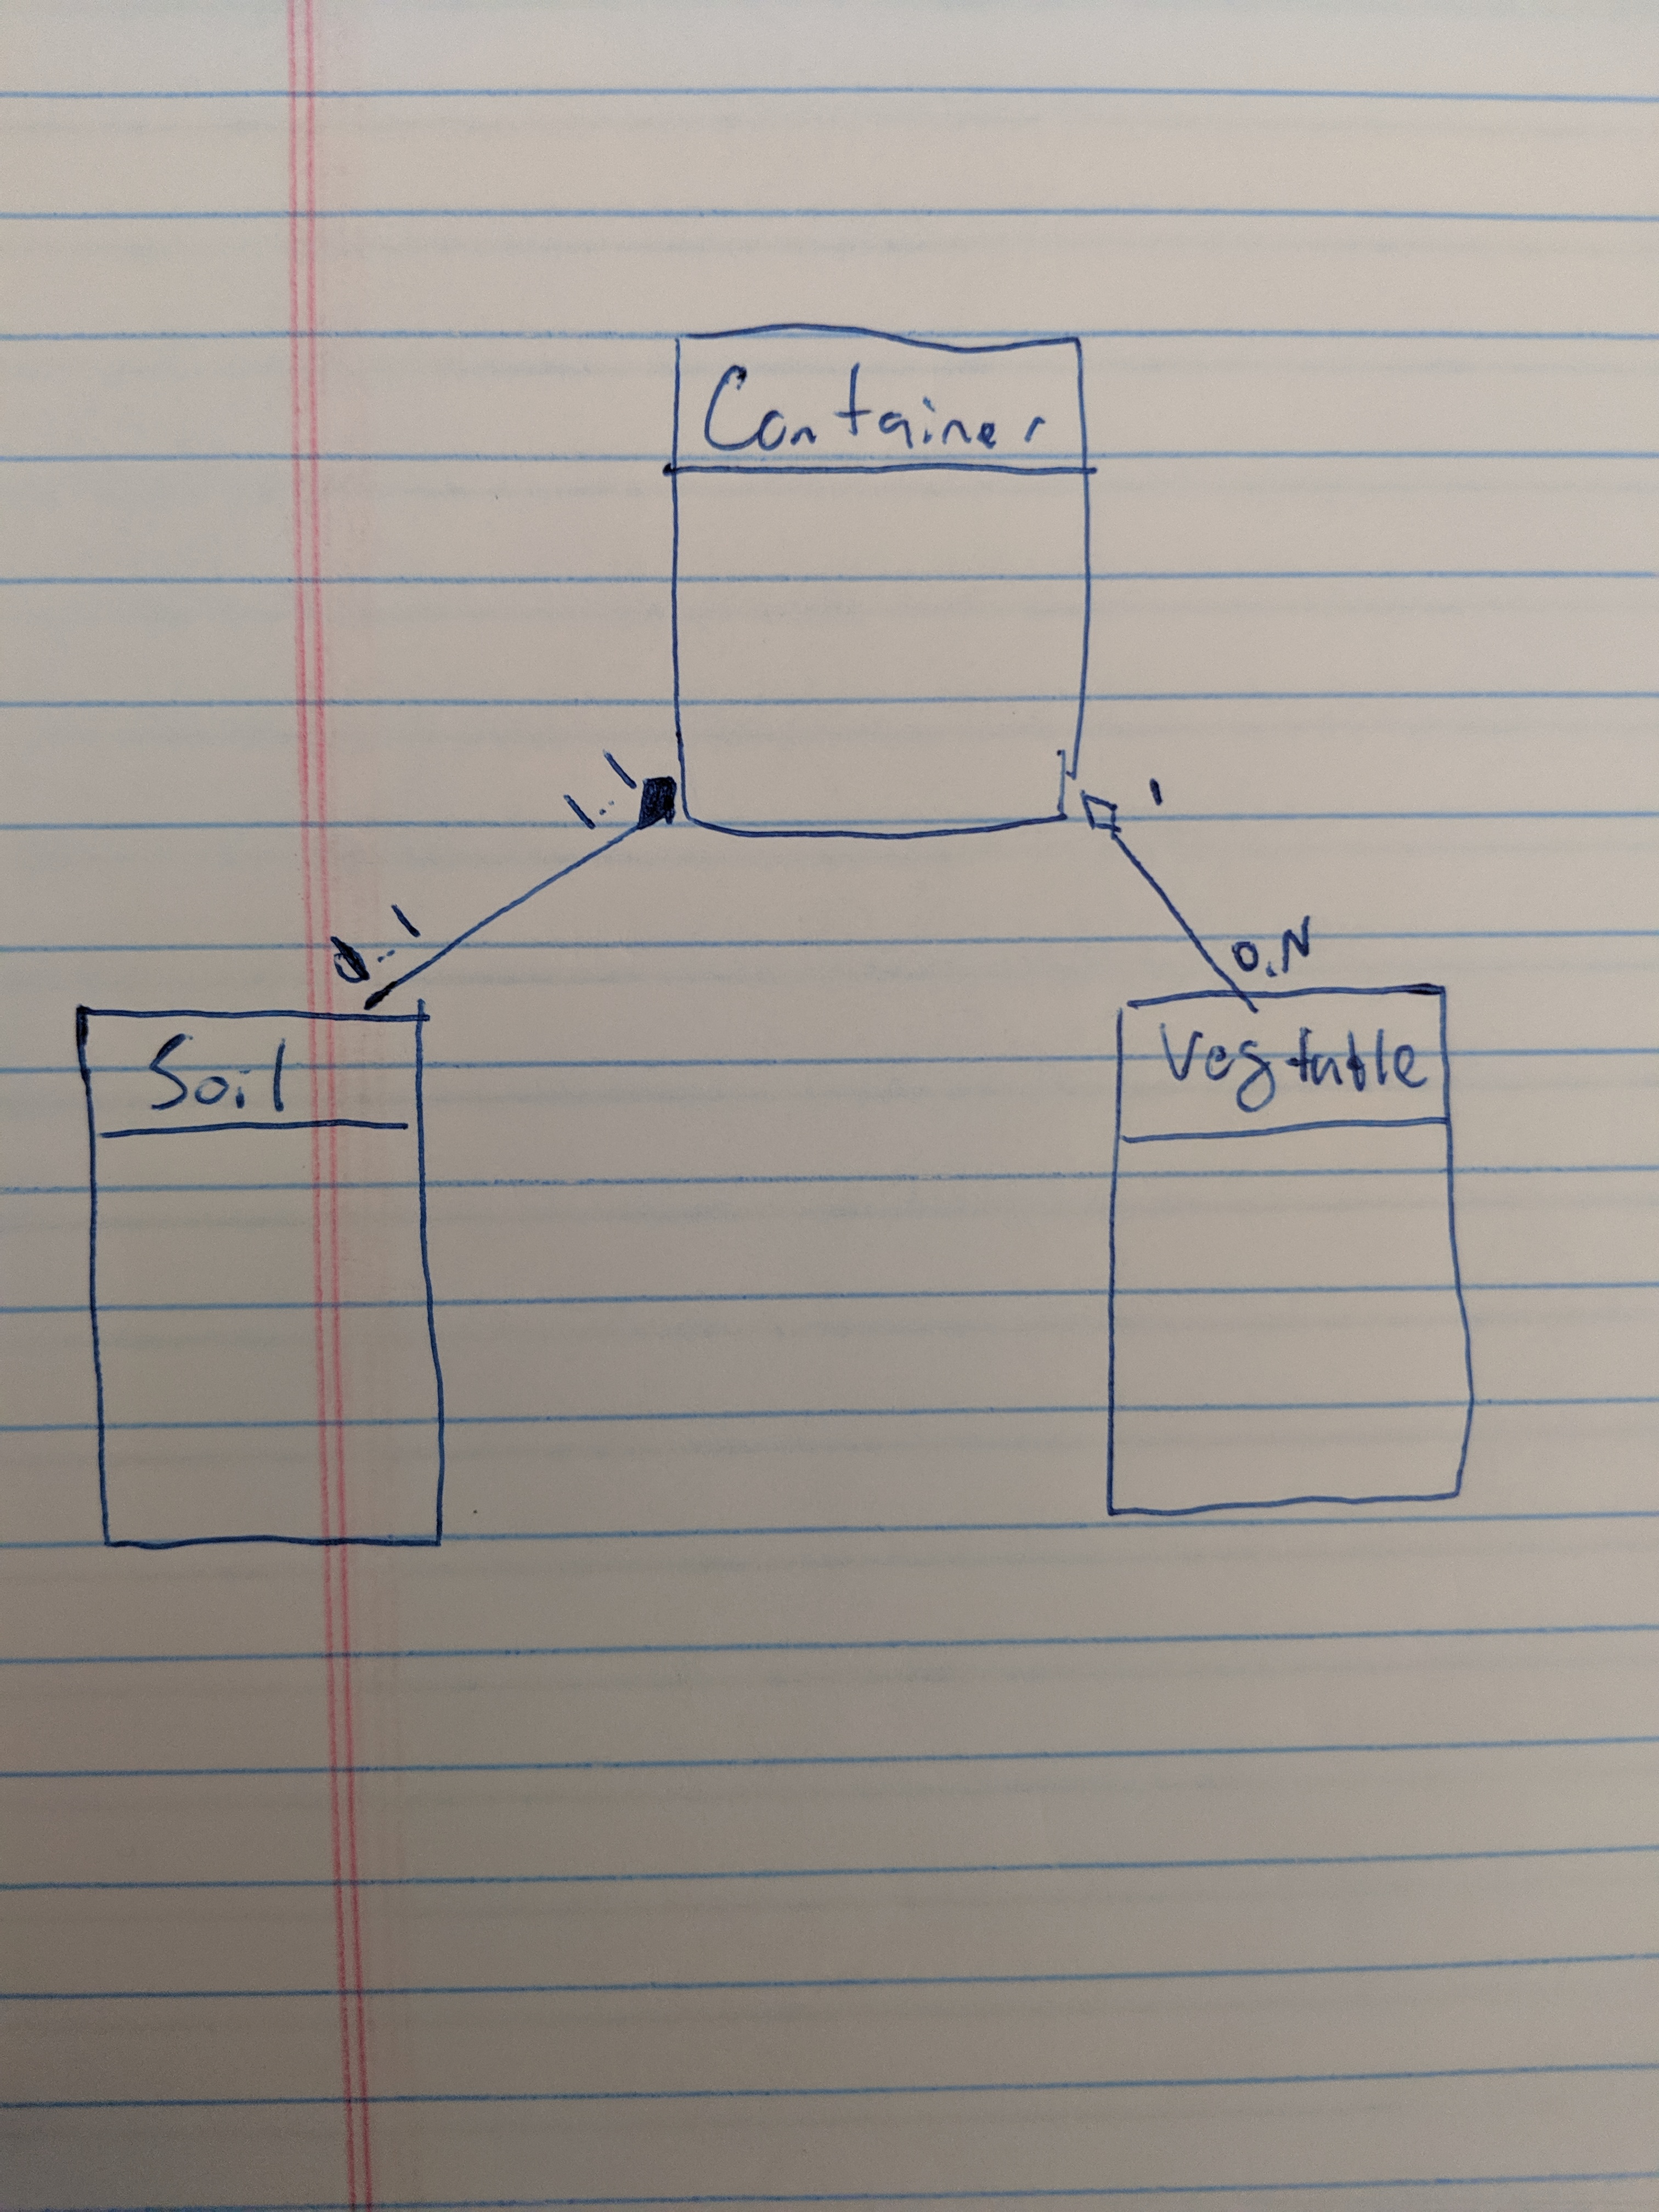 Container
1..1
1
0..1
0..N
Soil
Vegtable